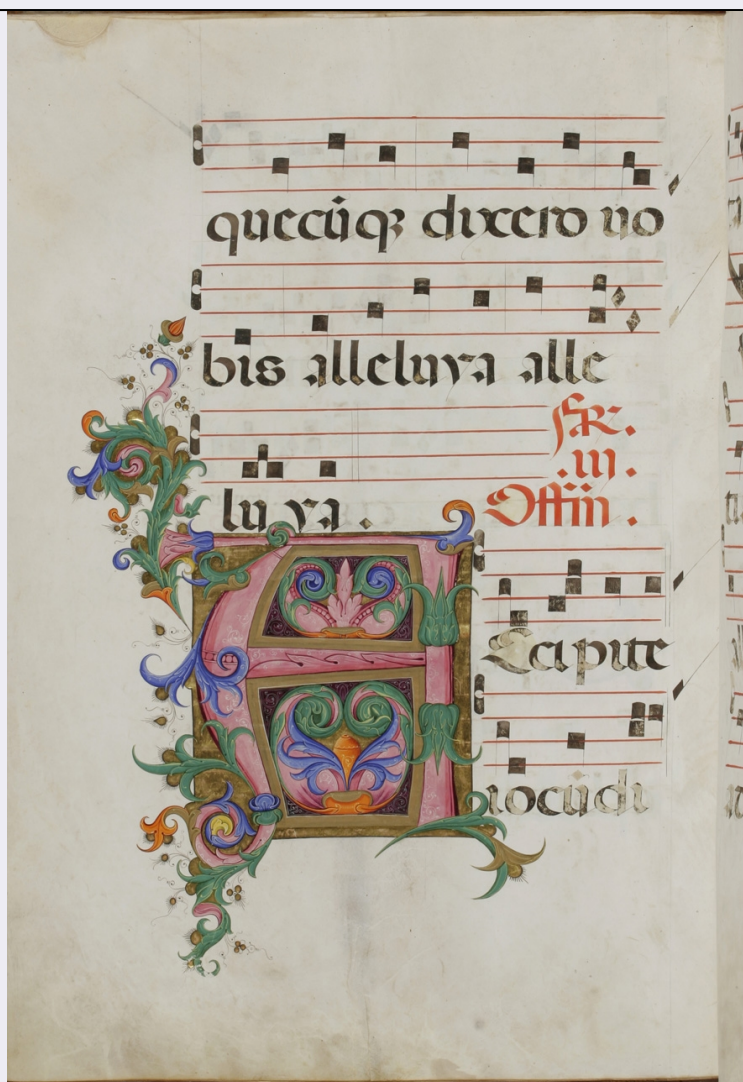 quecūqꝫ dixero uo
bis alleluya alle
luya.
FR.
.iii.
Offm̄.
ACcipite
iocūdi